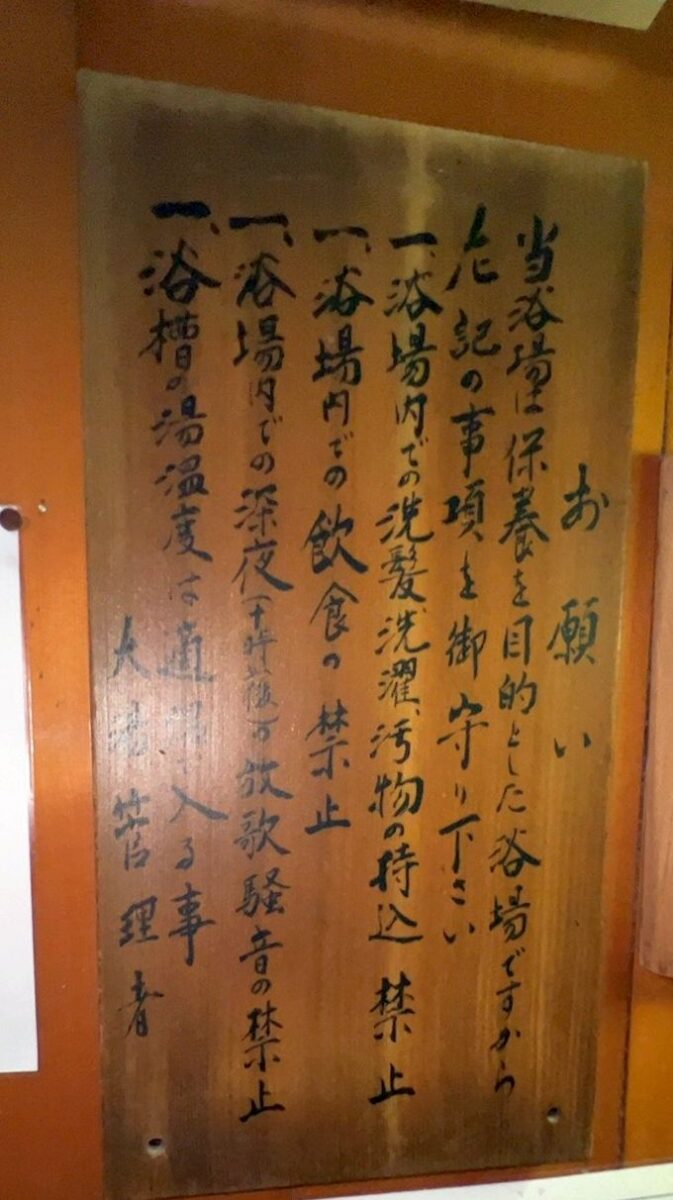 お願い
当浴場は保養を目的とした浴場ですから
左記の事項を御守り下さい
一、浴場内での洗髪、洗濯、汚物の持込禁止
一、浴場内での飲食の禁止
一、浴場内での深夜(十時以後)の放歌騒音の禁止
一、浴槽の湯温度は適温で入る事
大湯管理者